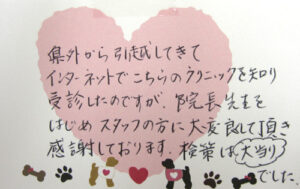 県外から引越してきて
インターネットでこちらのクリニックを知り
受診したのですが、院長先生を
はじめスタッフの方に大変良して頂き
感謝しております。検索は大当り
でした。